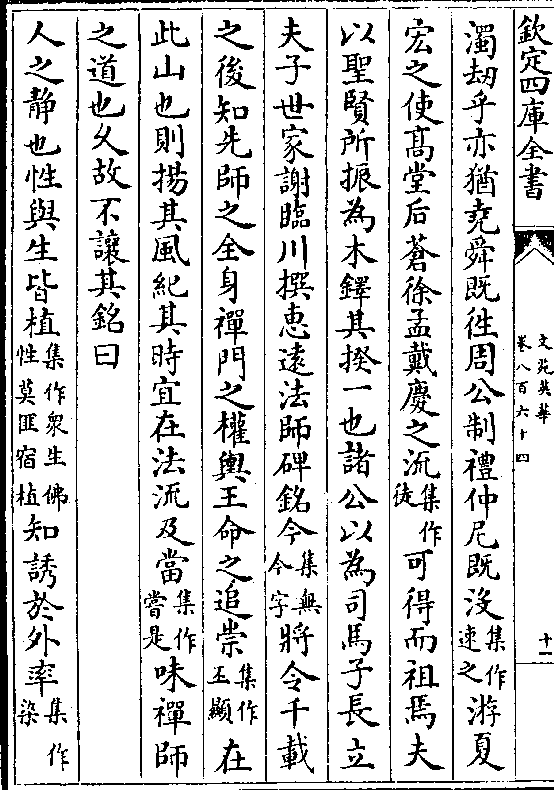 欽定四庫全書
文苑英華
卷八百六十四
十一
濁劫乎亦猶堯舜既徃周公制禮仲尼既沒集作逮之游夏
宏之使髙堂后蒼徐孟戴慶之流集作徒可得而祖焉夫
以聖賢所振為木鐸其揆一也諸公以為司馬子長立
夫子世家謝臨川撰恵逺法師碑銘今集無今字將令千載
之後知先師之全身禪門之權輿王命之追崇集作丕顯在
此山也則揚其風紀其時宜在法流及當集作嘗是味禪師
之道也乆故不讓其銘曰
人之静也性與生皆植集作衆生佛性莫匪宿植知誘於外率集作染